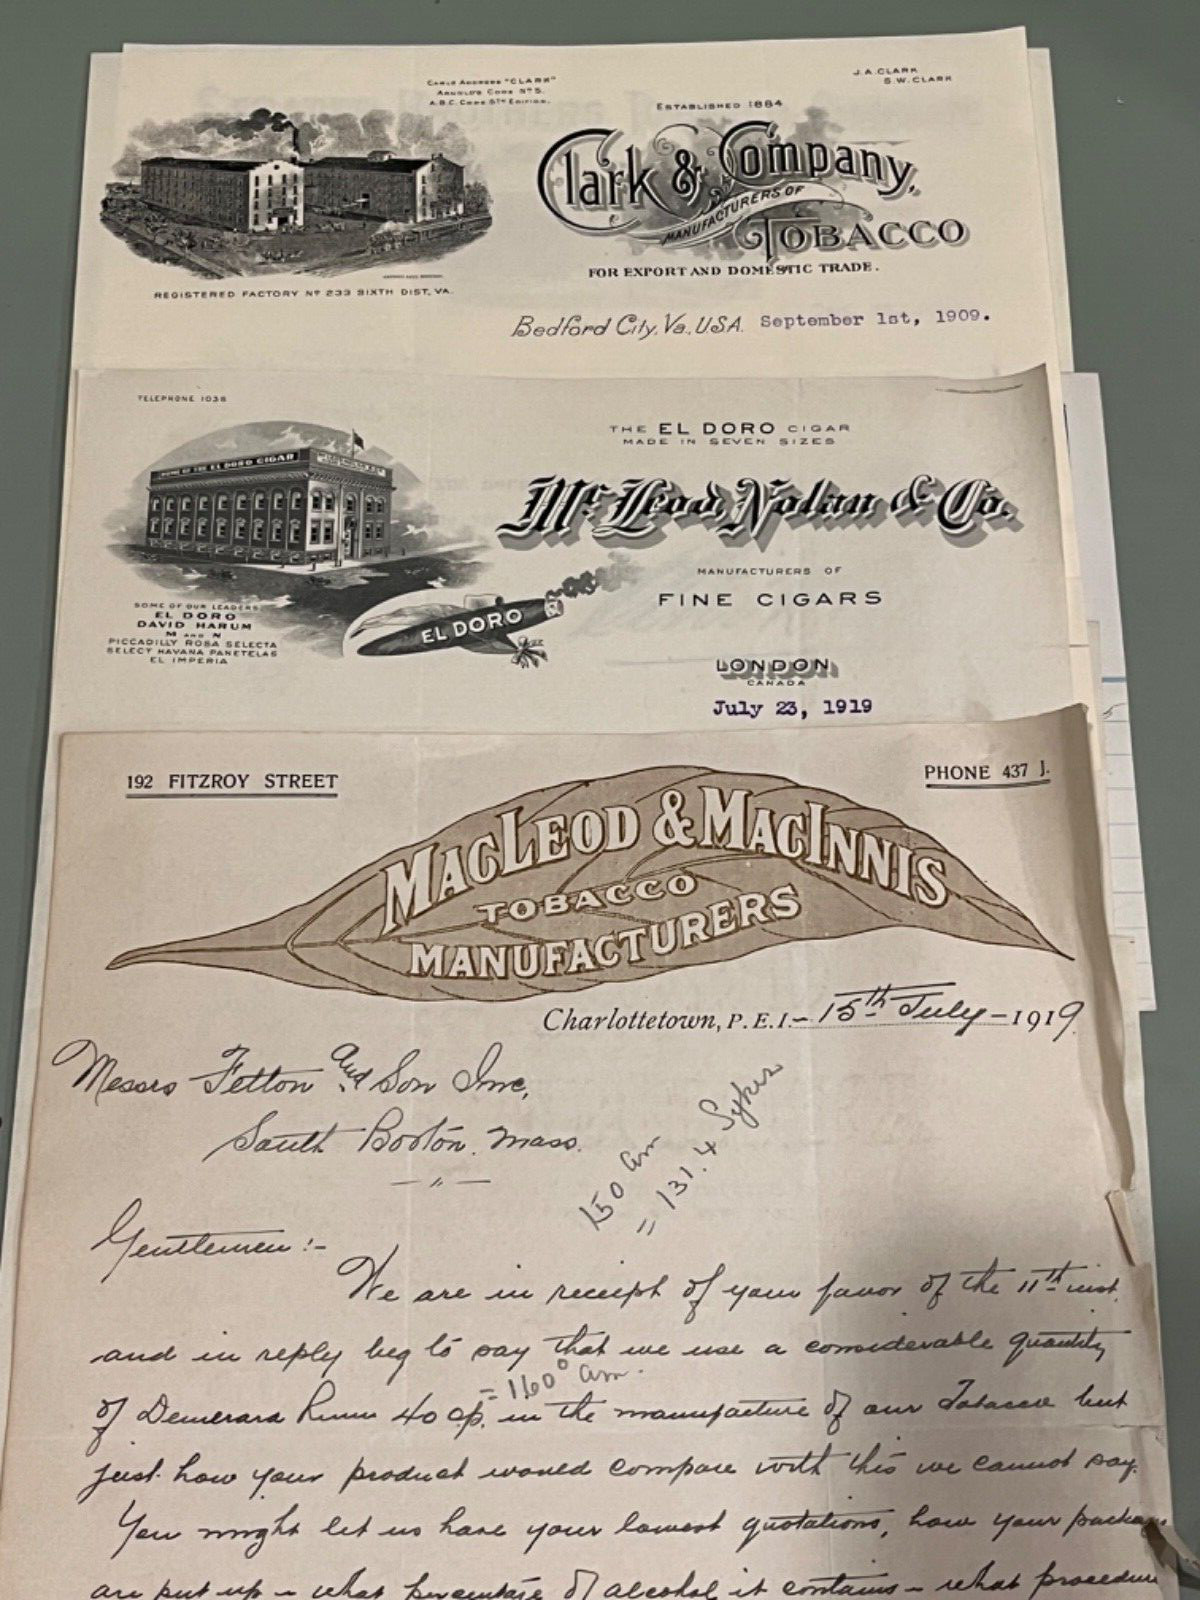 Cable Address "CLARK"
Arnold's Code No 5.
A.B.C. Code 5th Edition.
J.A. CLARK
S.W. CLARK
ESTABLISHED 1884
Clark & Company,
MANUFACTURERS OF
TOBACCO
FOR EXPORT AND DOMESTIC TRADE.
REGISTERED FACTORY No 233 SIXTH DIST, VA.
Bedford City, Va., USA. September 1st, 1909.
TELEPHONE 1038
THE EL DORO CIGAR
MADE IN SEVEN SIZES
HOME OF THE EL DORO CIGAR
McLeod, Nolan & Co.
MANUFACTURERS OF
FINE CIGARS
SOME OF OUR LEADERS
EL DORO
DAVID HARUM
M AND N
PICCADILLY ROSA SELECTA
SELECT HAVANA PANETELAS
EL IMPERIA
EL DORO
LONDON
CANADA
July 23, 1919
192 FITZROY STREET
PHONE 437 J.
MACLEOD & MACINNIS
TOBACCO
MANUFACTURERS
Charlottetown, P.E.I. - 15th July - 1919
Messrs Felton and Son Inc,
South Boston, Mass.
150 am
= 131.4 Sykes
Gentlemen :-
We are in receipt of your favor of the 11th inst.
and in reply beg to say that we use a considerable quantity
= 160° am.
of Demerara Rum 40 o.p. in the manufacture of our Tobacco but
just how your product would compare with this we cannot say.
You might let us have your lowest quotations, how your packages
are put up - what percentage of alcohol it contains - what procedure